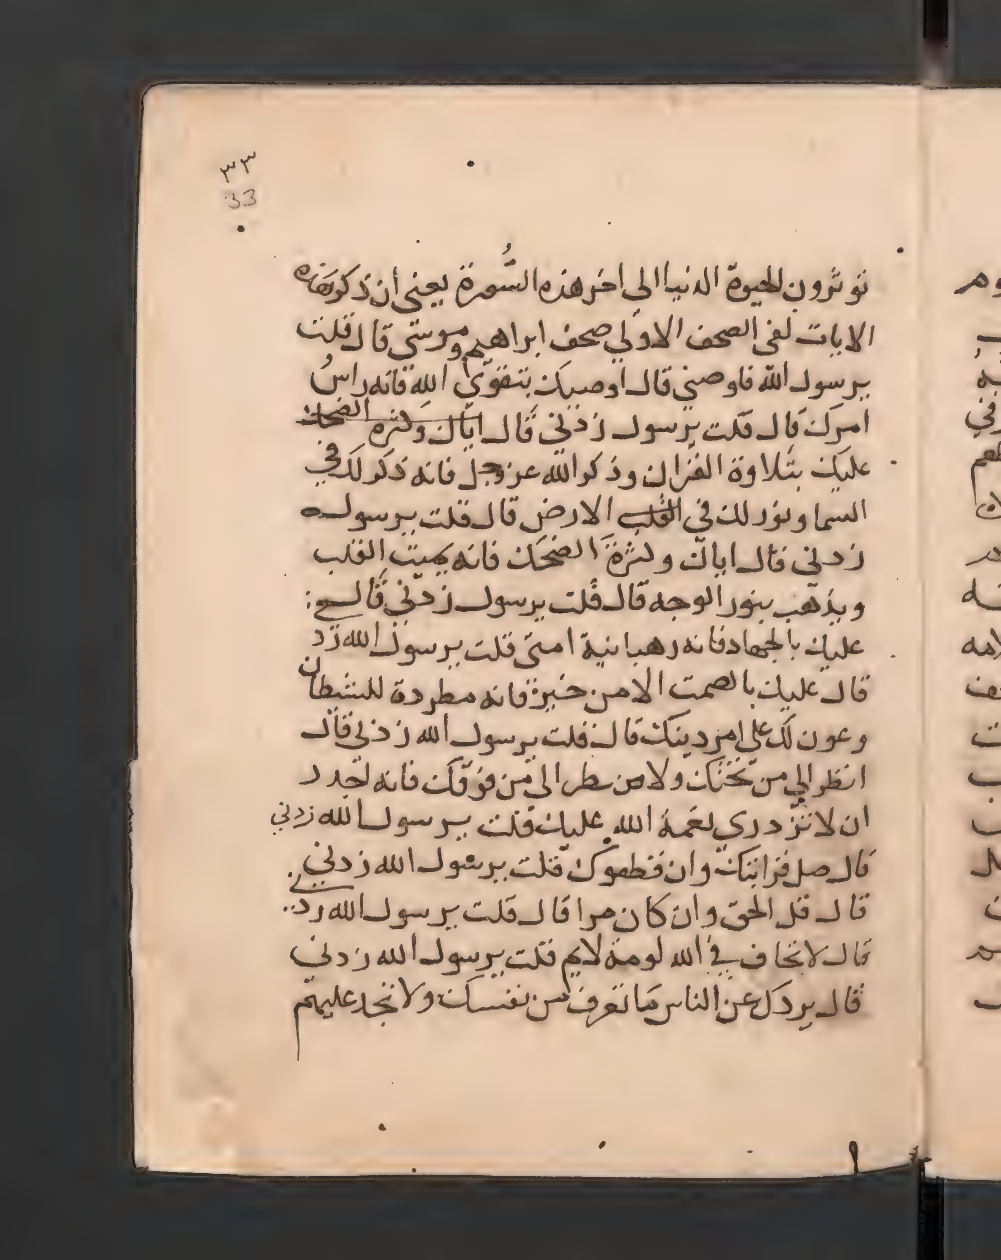 ٣٣
33
توثرون الحيوة الدنيا الي اخر هذه السُّورة يعني ان ذكر هذه
الايات لفي الصحف الاولي صحف ابراهيم وموسي قال قلت
يرسول الله فاوصني قال اوصيك بتقوي الله فانه راسُ
امرك قال قلت يرسول زدني قال اياك وكثرة الضحك
عليك بتلاوة القران وذكر الله عز وجل فانه ذكر لك في
السما ونور لك في القلب الارض قال قلت يرسول
زدني قال اياك وكثرة الضحك فانه يميت القلب
ويذهب بنور الوجه قال قلت يرسول زدني قال
عليك بالجهاد فانه رهبانية امتي قلت يرسول الله زد
قال عليك بالصمت الا من خير فانه مطردة للشيطان
وعون لك علي امر دينك قال قلت يرسول الله زدني قال
انظر الي من تحتك ولا من سطر الي من فوقك فانه اجدر
ان لا تزدري نعمة الله عليك قلت يرسول الله زدني
قال صل قرابتك وان قطعوك قلت يرسول الله زدني
قال قل الحق وان كان مرا قال قلت يرسول الله زدني
قال لا تخاف في الله لومة لايم قلت يرسول الله زدني
قال يردك عن الناس ما تعرف من نفسك ولا تجد عليهم